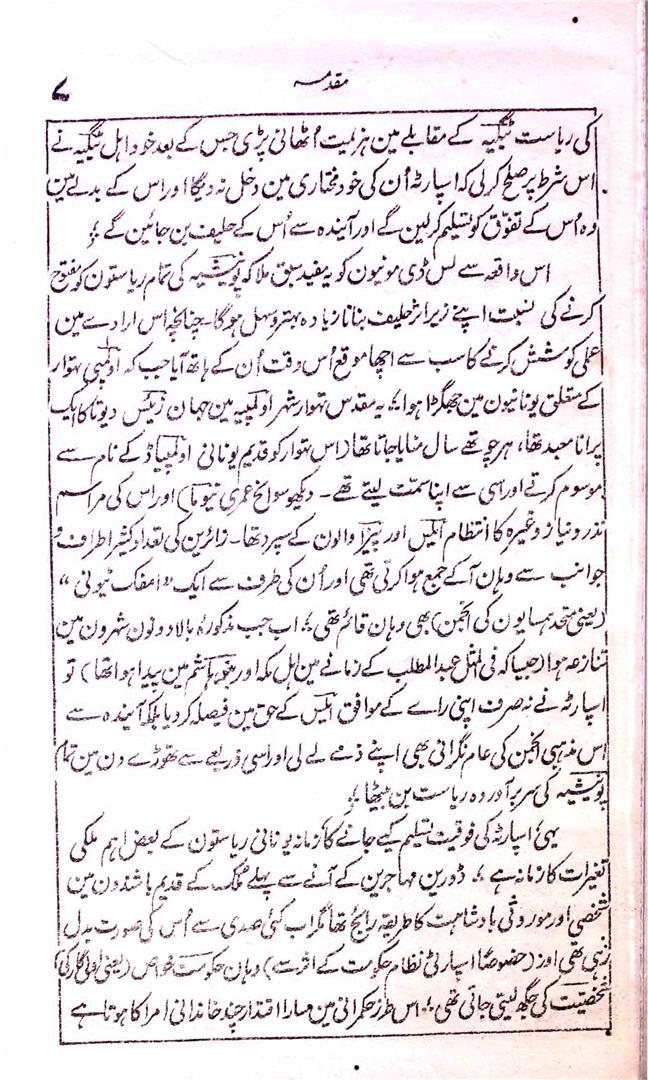 مقدمہ
۷
کی ریاست ٹیگیہ کے مقابلے مین ہزیمت اُٹھانی پڑی جس کے بعد خود اہل ٹیگیہ نے
اس شرط پر صلح کر لی کہ اسپارٹہ اُن کی خود مختاری مین دخل نہ دیگا اور اس کے بدلے مین
وہ اُس کے تفوّق کو تسلیم کر لین گے اور آیندہ سے اُس کے حلیف بن جائین گے ؛
اس واقعہ سے لس ڈی مونیون کو یہ مفید سبق ملا کہ پونیشیہ کی تمام ریاستون کو مفتوح
کرنے کی نسبت اپنے زیر اثر حلیف بنانا زیادہ بہتر و سہل ہوگا۔ چنانچہ اس ارادے مین
عملی کوشش کرنے کا سب سے اچھا موقع اُس وقت اُن کے ہاتھ آیا جب کہ اولمپی تہوار
کے متعلق یونانیون مین جھگڑا ہوا ؛ یہ مقدس تہوار شہر اولمپیہ مین جہان زئیس دیوتا کا ایک
پرانا معبد تھا، ہر چوتھے سال منایا جاتا تھا (اس تہوار کو قدیم یونانی اولمپیاڈ کے نام سے
موسوم کرتے اور اسی سے اپنا سمّت لیتے تھے۔ دیکھو سوانح عمری نیوما) اور اس کی مراسم
نذر و نیاز وغیرہ کا انتظام ایلیس اور پیزا والون کے سپرد تھا۔ زائرین کی تعداد کثیر اطراف و
جوانب سے وہان آکے جمع ہوا کرتی تھی اور اُن کی طرف سے ایک "امفک ٹیونی"
(یعنی متحد ہمسایون کی انجمن) بھی وہان قائم تھی ؛ اب جب مذکورۂ بالا دونون شہرون مین
تنازعہ ہوا (جیسا کہ فی المثل عبد المطلب کے زمانے مین اہل مکہ اور بنو ہاشم مین پیدا ہوا تھا) تو
اسپارٹہ نے نہ صرف اپنی راے کے موافق ایلیس کے حق مین فیصلہ کر دیا بلکہ آیندہ سے
اس مذہبی انجمن کی عام نگرانی بھی اپنے ذمے لے لی اور اسی ذریعے سے تھوڑے دن مین تمام
پونیشیہ کی سربرآوردہ ریاست بن بیٹھا ؛
یہی اسپارٹہ کی فوقیت تسلیم کیے جانے کا زمانہ یونانی ریاستون کے بعض اہم ملکی
تغیرات کا زمانہ ہے ؛ ڈورین مہاجرین کے آنے سے پہلے ملک کے قدیم باشندون مین
شخصی اور موروثی بادشاہت کا طریقہ رائج تھا مگر اب کئی صدی سے اُس کی صورت بدل
رہی تھی اور (خصوصًا اسپارٹی نظام حکومت کے اثر سے) وہان حکومت خواص (یعنی اولی گارکی)
شخصیت کی جگہ لیتی جاتی تھی ؛ اس طرز حکمرانی مین سارا اقتدار چند خاندانی امرا کا ہوتا ہے